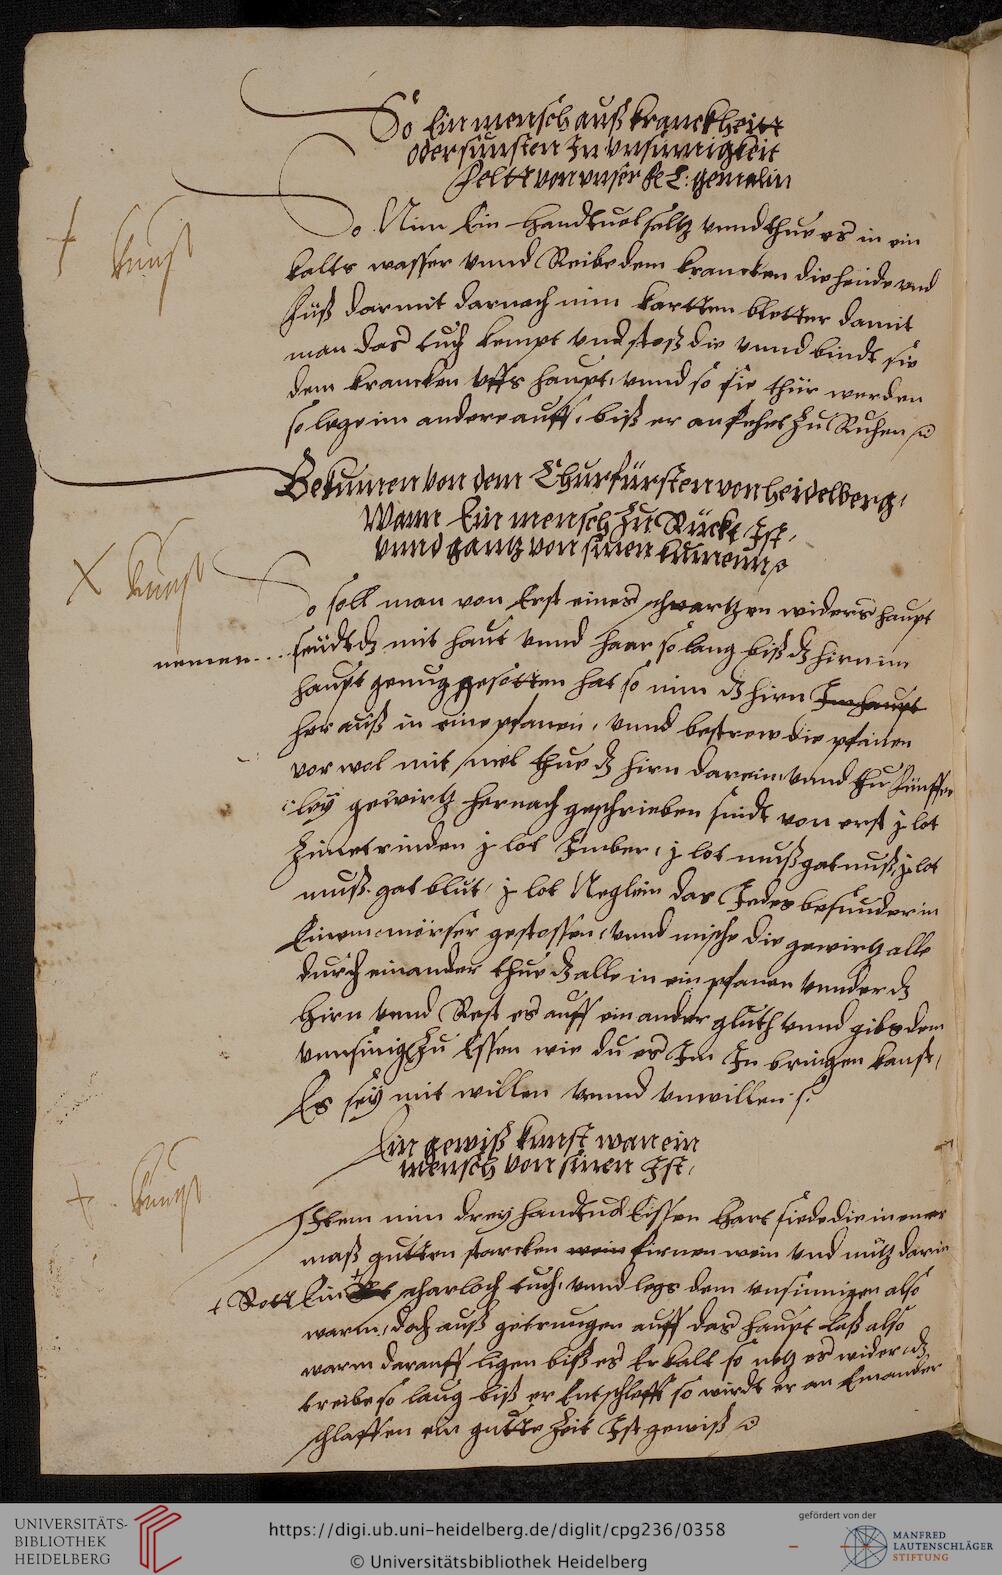 So Ein mensch auß kranckheitt
oder sunsten In vnsinnigkeit
felt von vnser F. G. gemalin
kunst
So Nim Ein handtuol saltz vnnd thue es in ein
kalts wasser vnnd Reibe dem krancken die hende vnd
füß darmit darnach nim kartten bletter damit
man das tuch kempt vnd stoß die vnnd bindt sie
dem krancken vffs haupt, vnnd so sie thür werden
so lege im andere auff, biß er anfehet zu Ruhen
Bekumen von dem Churfürsten von heidelberg,
Wann Ein mensch zu Rückt Ist,
vnnd gantz von sinen kumenn
kunst
So soll man von Erst eines schwartzen widers haupt
nemen seüdt dz mit haut vnnd haar so lang biß dz hirn im
haupt genug gesotten hat so nim dz hirn Im haupt
her auß in eine pfanen, vnnd bestrew die pfanen
vor wol mit mel thue dz hirn darein, vnnd thu fünffer
ley gewirtz hernach geschrieben sindt von erst j lot
Zimetrinden j lot Imber, j lot mußgatnuß, j lot
mußgat blut, j lot Neglein das Jedes besunder in
Einem mörser gestossen, vnnd mische die gewirtz alle
durch einander thue dz alle in ein pfanen vnnder dz
Hirn vnnd Rest es auff ein ander gluth vnnd gibs dem
vnnsinig zu Essen wie du es Im In bringen kanst,
Es seÿ mit willen vnnd vnwillen
Ein gewiß kunst wan ein
mensch von sinen Ist,
kunst
Item nim dreÿ handtuol Eissen hart siede die in ener
maß gutten starcken wein firnen wein vnd nütz darin
Rott Ein scharloch tuch, vnnd legs dem vnsinnigen also
warm, doch auß getrungen auff das haupt laß also
warm darauff ligen biß es Erkalt so netz es wider, dz
treibe so lang biß er Entschlefft so wirdt er an Einander
schlaffen ein gutte Zeit Ist gewiß
UNIVERSITÄTS-
BIBLIOTHEK
HEIDELBERG
https://digi.ub.uni-heidelberg.de/diglit/cpg236/0358
© Universitätsbibliothek Heidelberg
gefördert von der
MANFRED
LAUTENSCHLÄGER
STIFTUNG